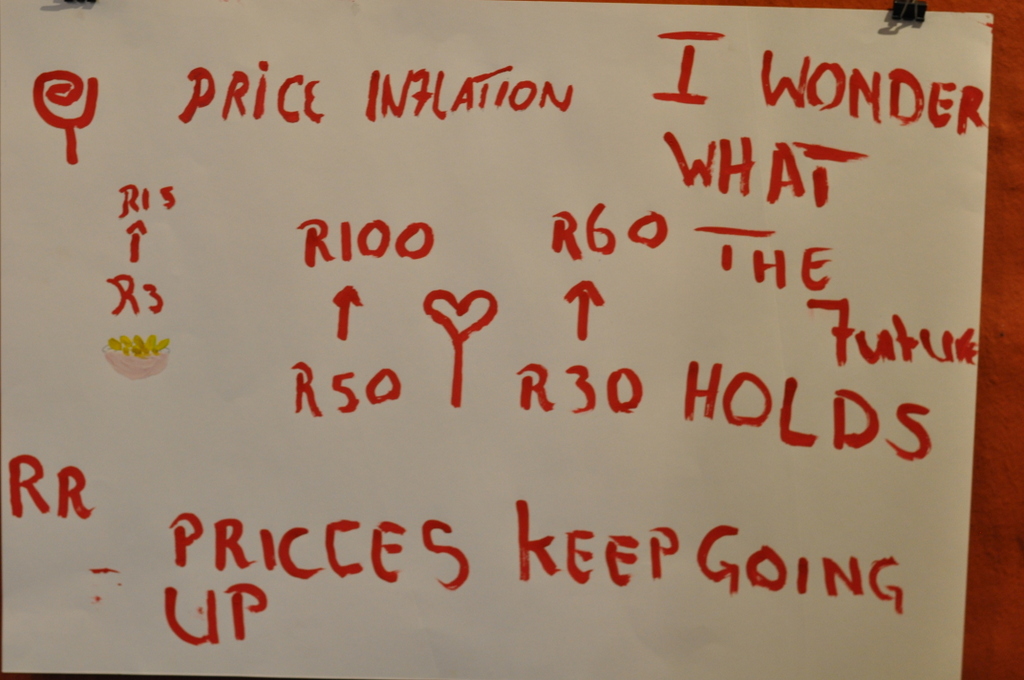 PRICE INFLATION
I WONDER
WHAT
THE
Future
HOLDS
R15
R3
R100
R50
R60
R30
RR
PRICCES KEEP GOING
UP